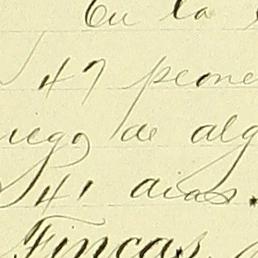 En la
47 peone
uego de alg
41 dias.
Fincas.